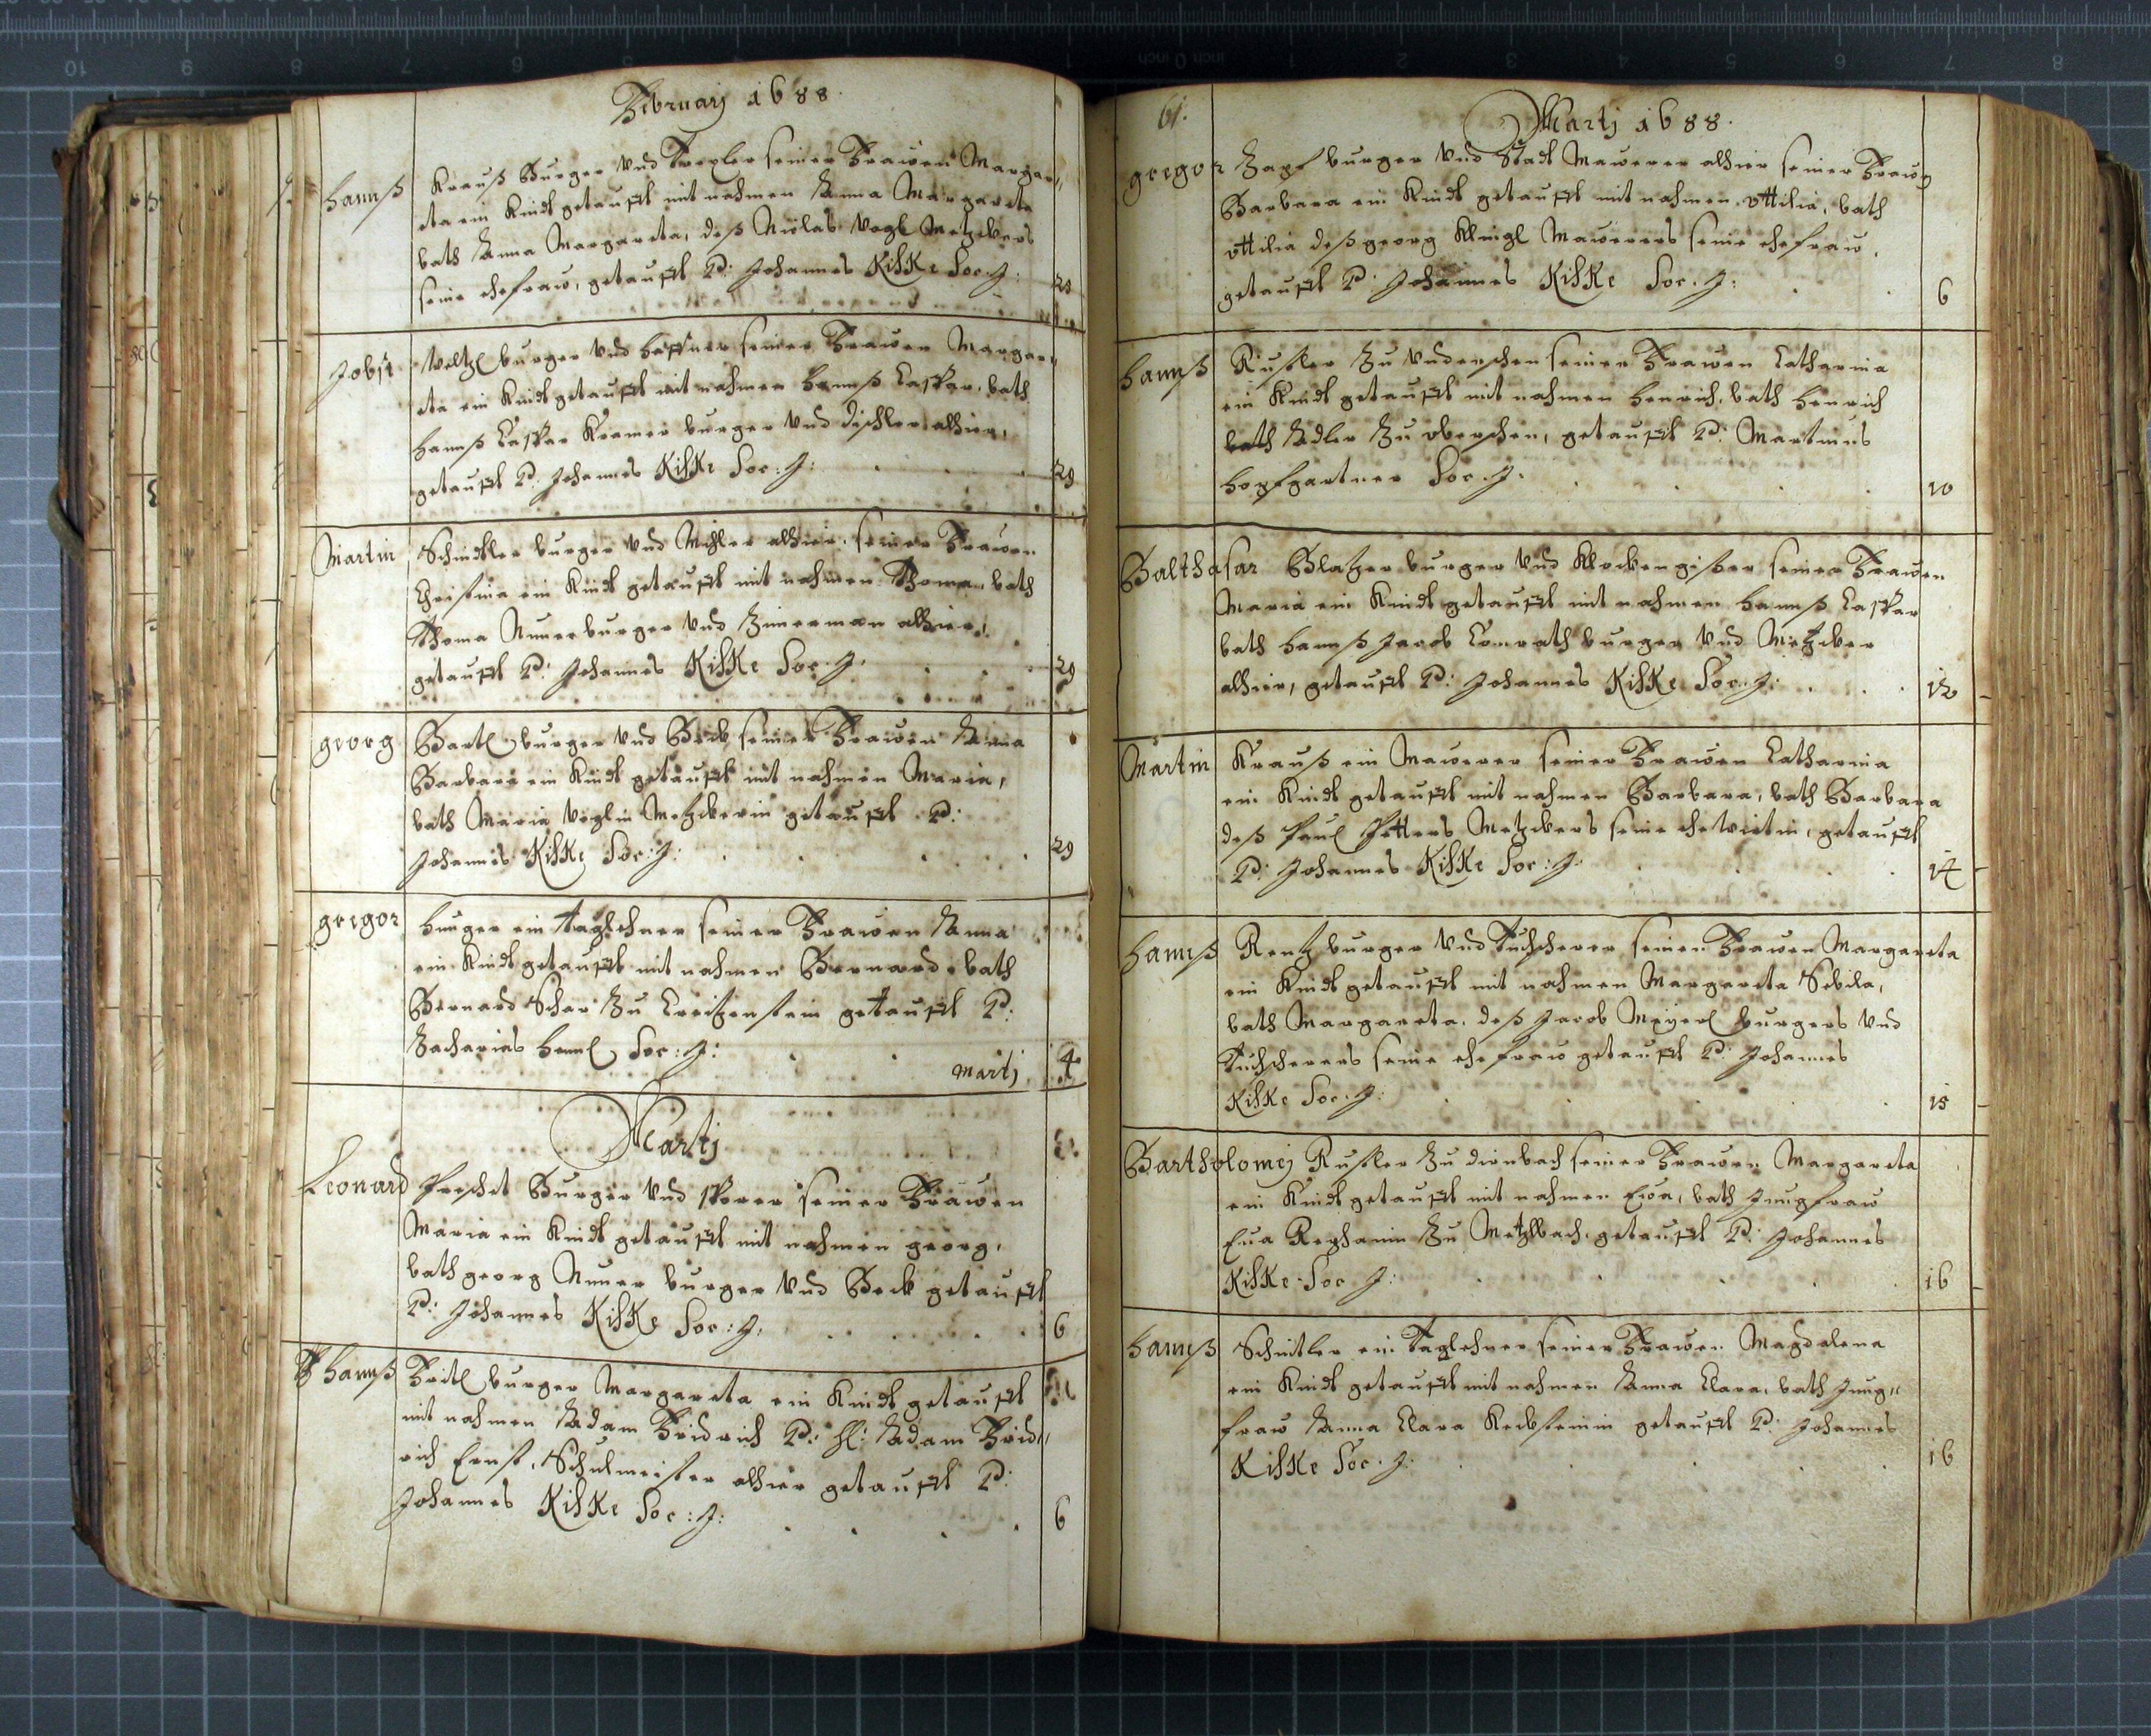 Februarj 1688.
Hannß Krauß Burger vnd Drexler seiner Frawen Margar„
eta ein Kindt getaufft mit nahmen Anna Margareta
bath Anna Margareta, deß Niclas Vogl Metzkers
seine ehefraw, getaufft P: Johannes Kiske Soc. J:
Jobst Weltzl burger vnd haffner seiner Frawen Margar„
eta ein Kindt getaufft mit nahmen Hannß Caspar, bath
Hannß Caspar Kramer burger vnd dischler alhier,
getaufft P. Johannes Kiske Soc: J: 29
Martin Schindler burger vnd alhier seiner Frawen
Christina ein Kindt getaufft mit nahmen Thoma, bath
Thoma burger vnd Zimerman alhier,
getaufft P: Johannes Kiske Soc. J. 29
Georg Bartl burger vnd Beck seiner Frawen Anna
Barbara ein Kindt getaufft mit nahmen Maria,
bath Maria Voglin Metzkerin getaufft P:
Johannes Kiske Soc: J: 29
Gregor ein taglehner seiner Frawen Anna
ein Kindt getaufft mit nahmen Bernard, bath
Bernard zu getaufft P:
Zacharias Soc: J:
Martj 4
Martj
Leonard burger vnd seiner Frawen
Maria ein Kindt getaufft mit nahmen Georg,
bath Georg burger vnd Beck getaufft
P: Johannes Kiske Soc: J: 6
Hannß burger Margareta ein Kindt getaufft
mit nahmen Adam Fridrich P: H: Adam Frid„
rich Ernst, Schulmeister alhier getaufft P:
Johannes Kiske Soc: J: 6
61.
Martj 1688.
Gregor Zapf burger vnd Stadt Mawerer alhier seiner Fraw
Barbara ein Kindt getaufft mit nahmen Ottilia, bath
Ottilia deß Georg Klingl Mawerers seine ehefraw,
getaufft P. Johannes Kiske Soc. J: 6
Hannß zu seiner Frawen Catharina
ein Kindt getaufft mit nahmen Henrich, bath Henrich
bath Adler zu getaufft P: Martinus
Hopfgartner Soc. J: 10
Balthasar Blatzer burger vnd Klockengisser seiner Frawen
Maria ein Kindt getaufft mit nahmen Hannß Caspar
bath Hannß Jacob Conrath burger vnd Metzker
alhier, getaufft P: Johannes Kiske Soc: J: 12
Martin Krauß ein Mawerer seiner Frawen Catharina
ein Kindt getaufft mit nahmen Barbara, bath Barbara
deß Paul Metzkers seine ehewirtin, getaufft
P: Johannes Kiske Soc: J: 14
Hannß Rentz burger vnd Tuchscherer seiner Frawen Margareta
ein Kindt getaufft mit nahmen Margareta Sibila,
bath Margareta, deß Jacob Meyerl burgers vnd
Tuchscherers seine ehefraw getaufft P: Johannes
Kiske Soc. J: 15
Bartholomej zu dirnbach seiner Frawen Margareta
ein Kindt getaufft mit nahmen Eva, bath Jungfraw
Eva zu Metzlbach, getaufft P. Johannes
Kiske Soc. J: 16
Hannß Schintler ein Taglehner seiner Frawen Magdalena
ein Kindt getaufft mit nahmen Anna Clara, bath Jung„
fraw Anna Clara getaufft P: Johannes
Kiske Soc. J: 16